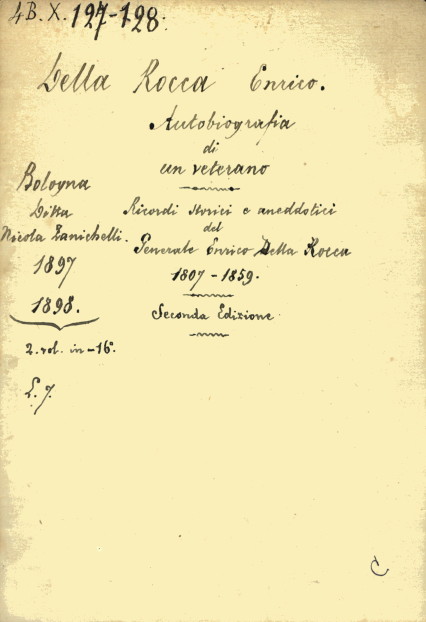 4B. X. 127-128.
Della Rocca Enrico.
Autobiografia
di
un veterano
Ricordi storici e aneddotici
del
Generale Enrico Della Rocca
1807 - 1859.
Seconda Edizione
Bologna
Ditta
Nicola Zanichelli.
1897
1898.
2. vol. in -16°.
L. 7.
C